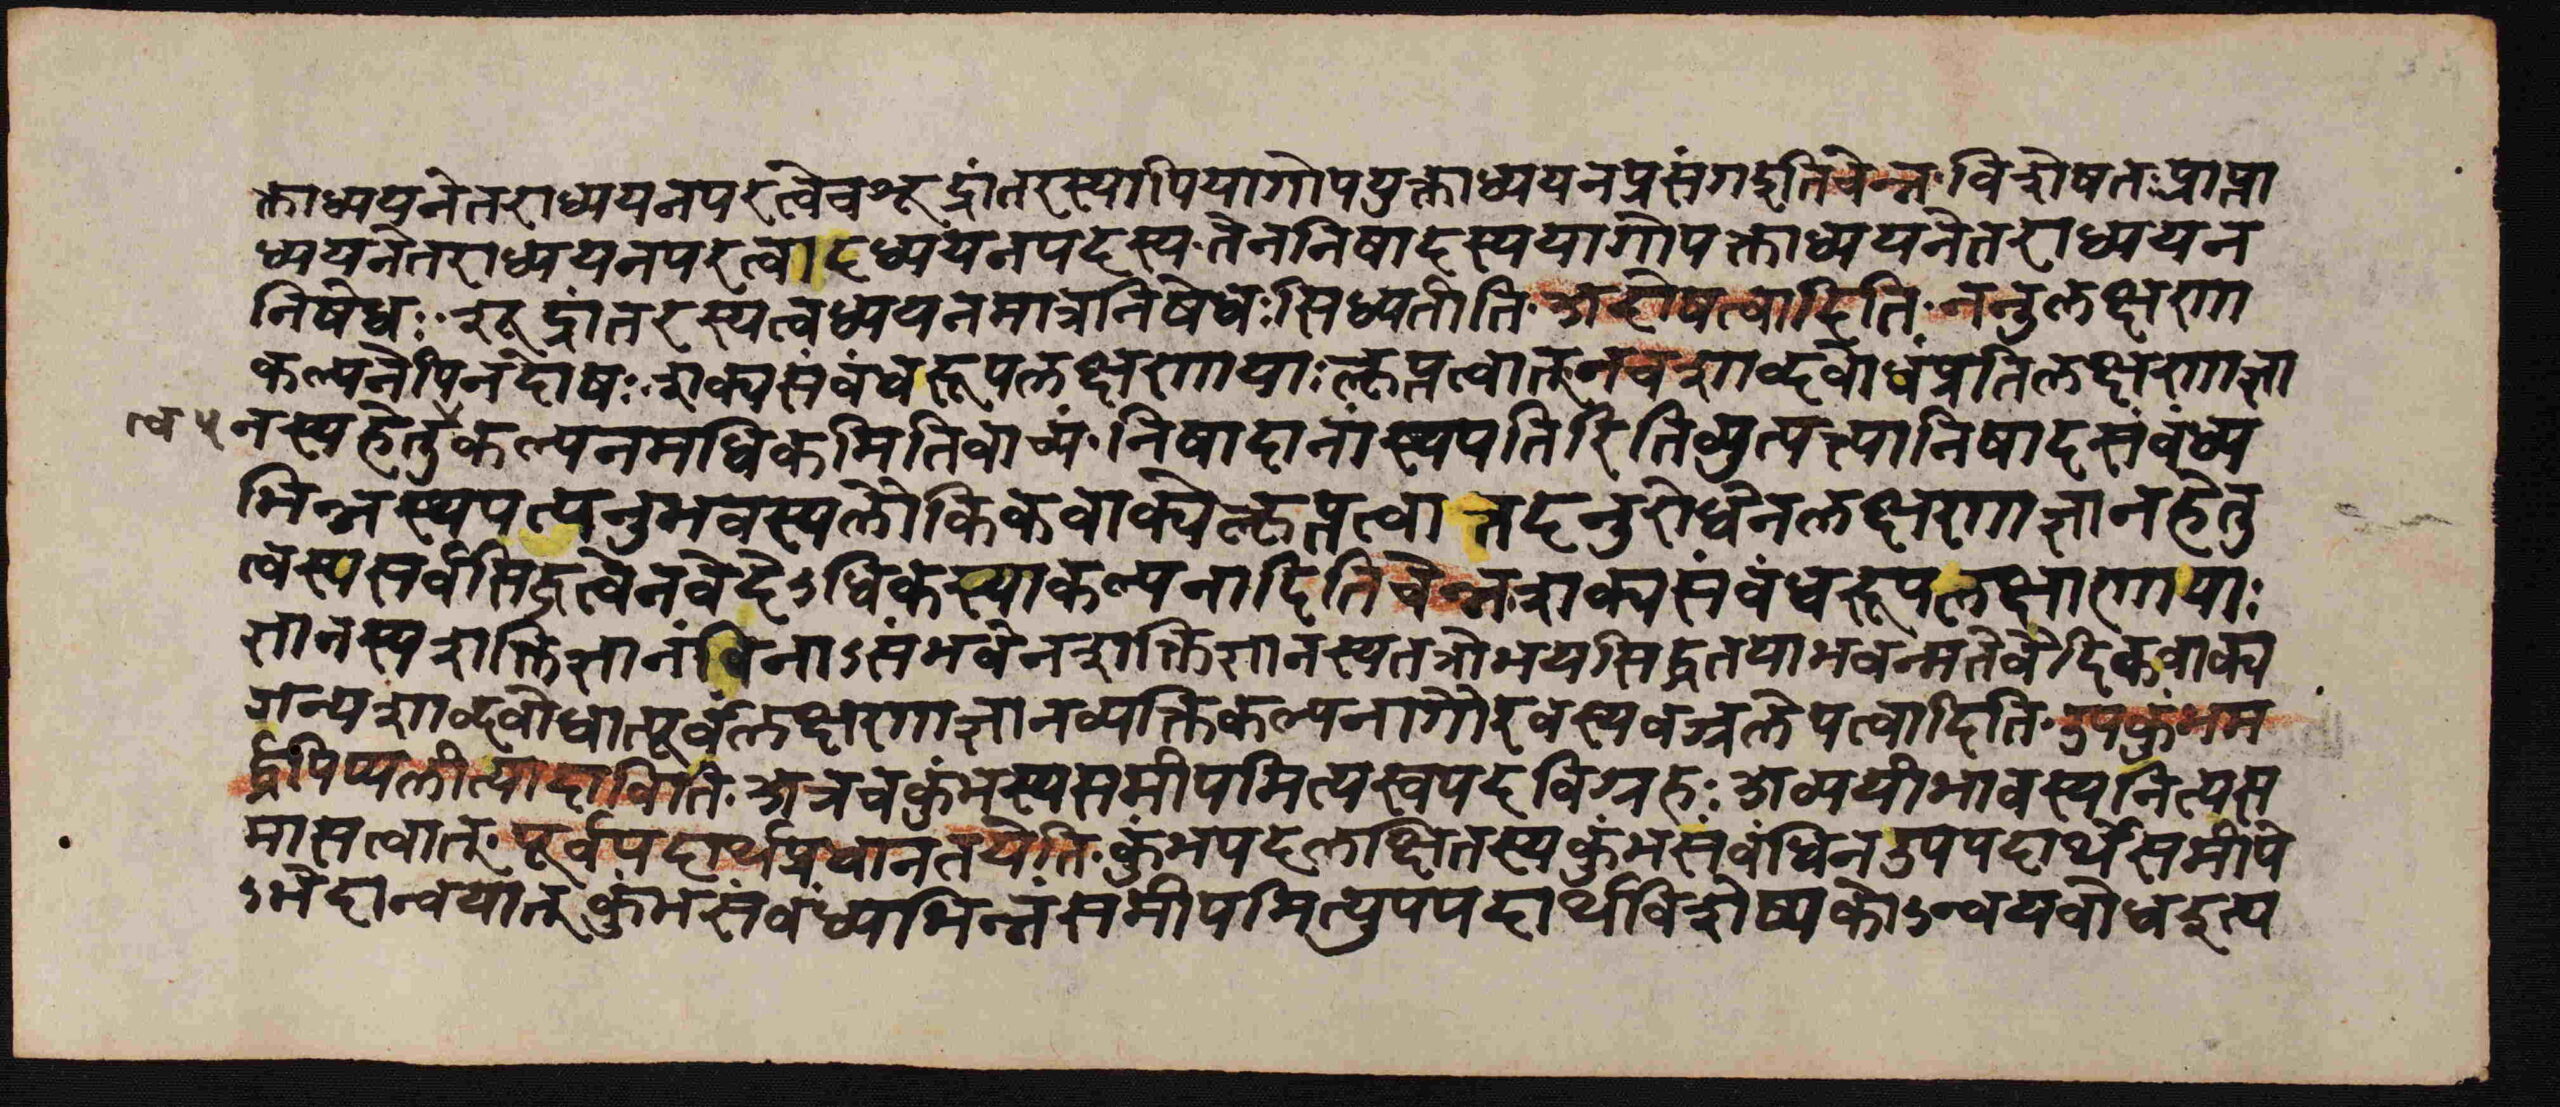 क्ताध्ययनेतराध्ययनपरत्वेवशूद्रांतरस्यापियागोपयुक्ताध्ययनप्रसंगइतिचेन्न॰विशेषतःप्राप्ता
ध्ययनेतराध्ययनपरत्वादध्ययनपदस्य॰तेननिषादस्ययागोपक्ताध्ययनेतराध्ययन
निषेधः॰शूद्रांतरस्यत्वध्ययनमात्रनिषेधःसिध्यतीति॰अशेषत्वादिति॰ननुलक्षणा
कल्पनेपिनदोषः॰शक्यसंबंधरूपलक्षणायाःकॢप्तत्वात्नचशाब्दबोधंप्रतिलक्षणाज्ञा
नस्यहेतुकल्पनमधिकमितिवाच्यं॰निषादानांस्थपतिरितिव्युत्पत्त्यानिषादसंबंध्य
त्व ५
भिन्नस्थपत्यनुभवस्यलौकिकवाक्येकॢप्तत्वात्तदनुरोधेनलक्षणाज्ञानहेतु
त्वस्यसर्वसिद्धत्वेनवेदेऽधिकस्याकल्पनादितिचेन्न॰शक्यसंबंधरूपलक्षाणायाः
ज्ञानस्यशक्तिज्ञानंविनाऽसंभवेनशक्तिज्ञानस्यतत्रोभयसिद्धतयाभवन्मतेवैदिकवाक्य
जन्यशाब्दबोधात्पूर्वंलक्षणाज्ञानव्यक्तिकल्पनागौरवस्यवज्रलेपत्वादिति॰उपकुंभम
र्द्धपिप्पलीत्यादाविति॰अत्रचकुंभस्यसमीपमित्यस्वपदविग्रहः॰अव्ययीभावस्यनित्यस
मासत्वात्॰पूर्वपदार्थप्रधानतयेति॰कुंभपदलाक्षितस्यकुंभसंबंधिनउपपदार्थेसमीपे
ऽभेदान्वयात्कुंभसंबंध्यभिन्नंसमीपमित्युपपदार्थविशेष्यकोऽन्वयबोधइत्य